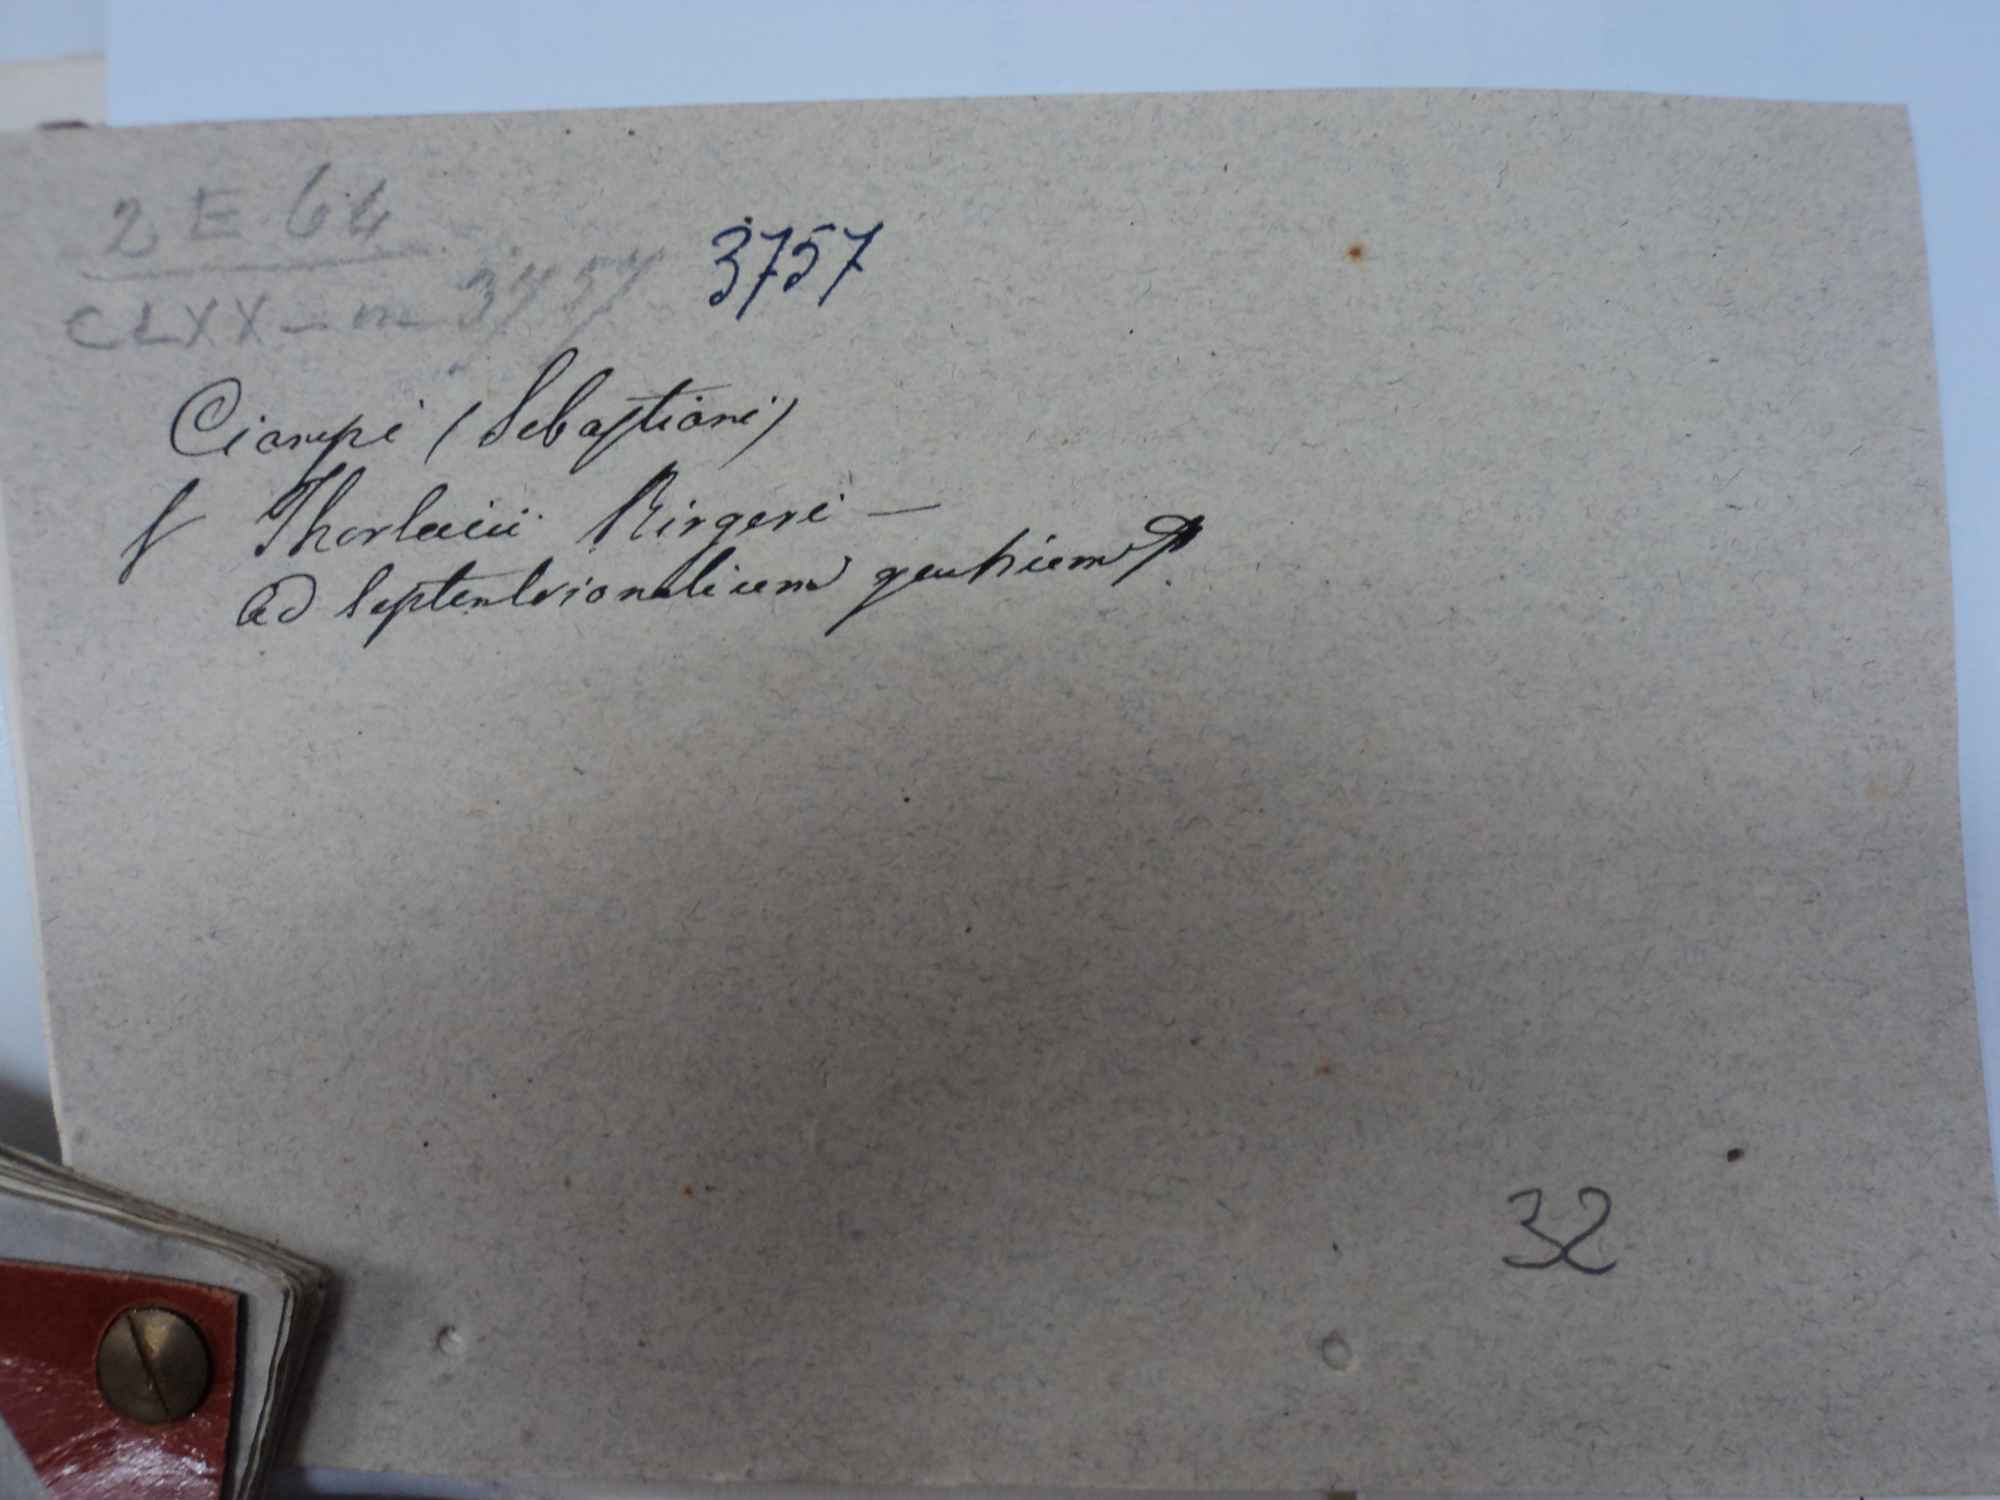 2 E 64
CLXX - m 3757 3757
Ciampi (Sebastiani)
f Thorlacii Birgeri —
Ad septentrionalium gentium
32